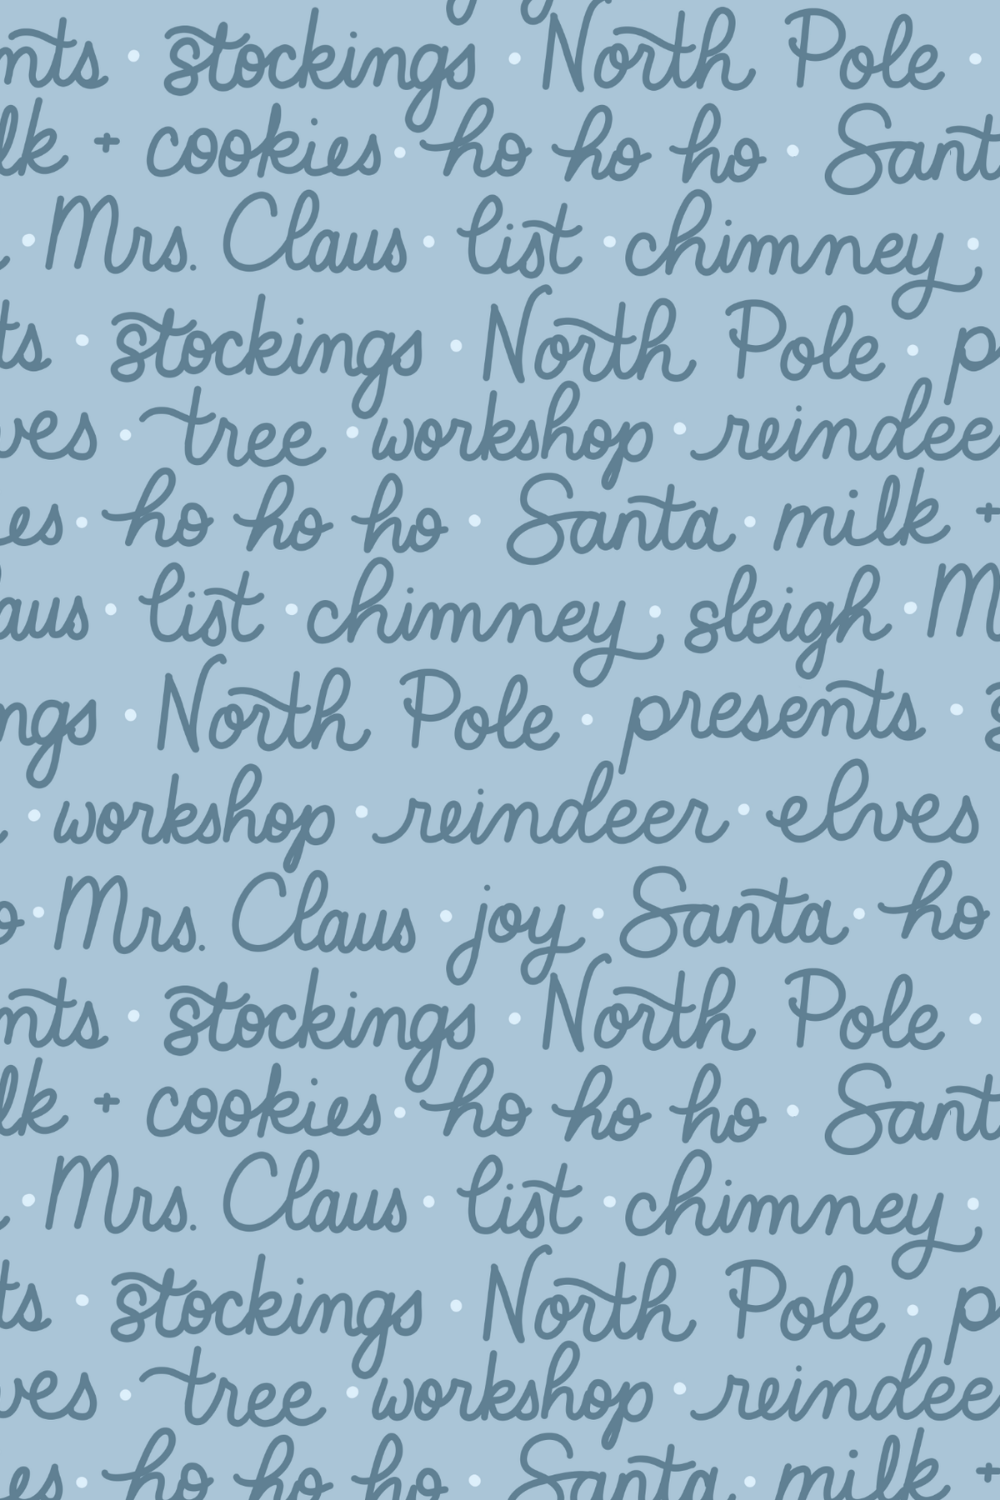 nts · stockings · North Pole ·
lk + cookies · ho ho ho · Sant
· Mrs. Claus · list · chimney ·
ts · stockings · North Pole · p
ves · tree · workshop · reindee
es · ho ho ho · Santa · milk +
aus · list · chimney · sleigh · M
ngs · North Pole · presents · s
· workshop · reindeer · elves
o · Mrs. Claus · joy · Santa · ho
nts · stockings · North Pole ·
lk + cookies · ho ho ho · Sant
· Mrs. Claus · list · chimney ·
ts · stockings · North Pole · p
ves · tree · workshop · reindee
es · ho ho ho · Santa · milk +